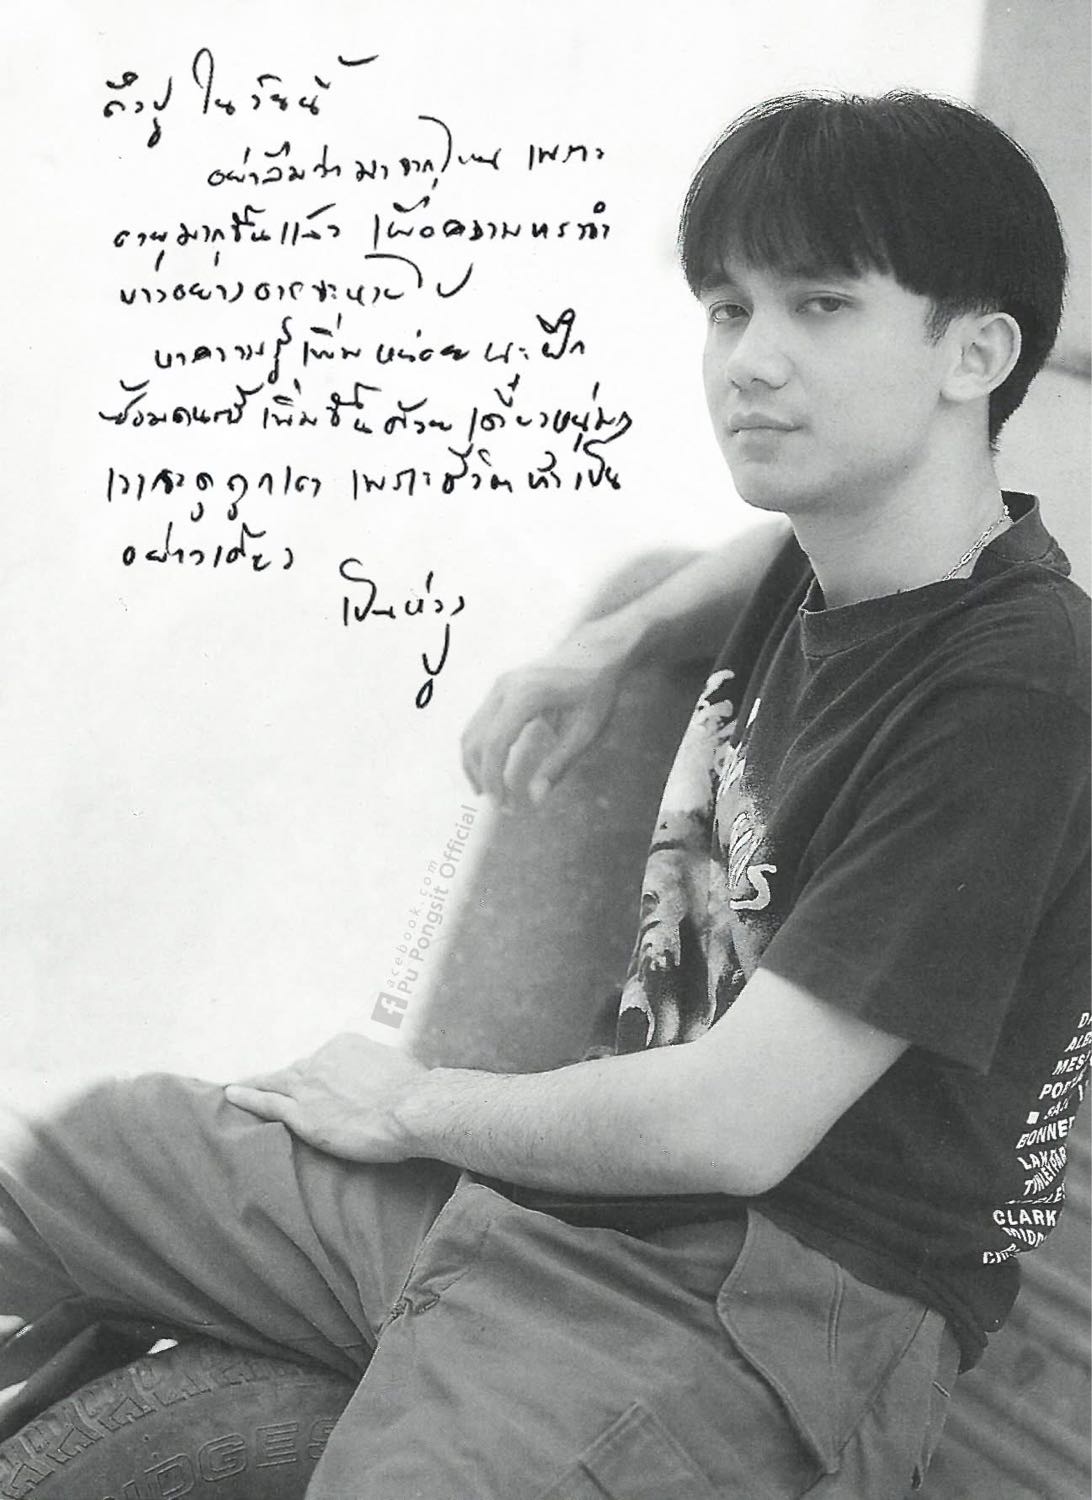 ถึงปู ในวันนี้
อย่าลืมว่า มาจากไหน เพราะ
อายุมากขึ้นแล้ว เผื่อความทรงจำ
บางอย่างอาจจะหายไป
หาความรู้เพิ่มหน่อย และฝึก
ซ้อมดนตรีเพิ่มขึ้นด้วย เดี๋ยวหนุ่มๆ
เขาจะดูถูกเอา เพราะชีวิต
อย่างเดียว
เป็นห่วง
ปู
facebook.com
Pu Pongsit Official
CLARK